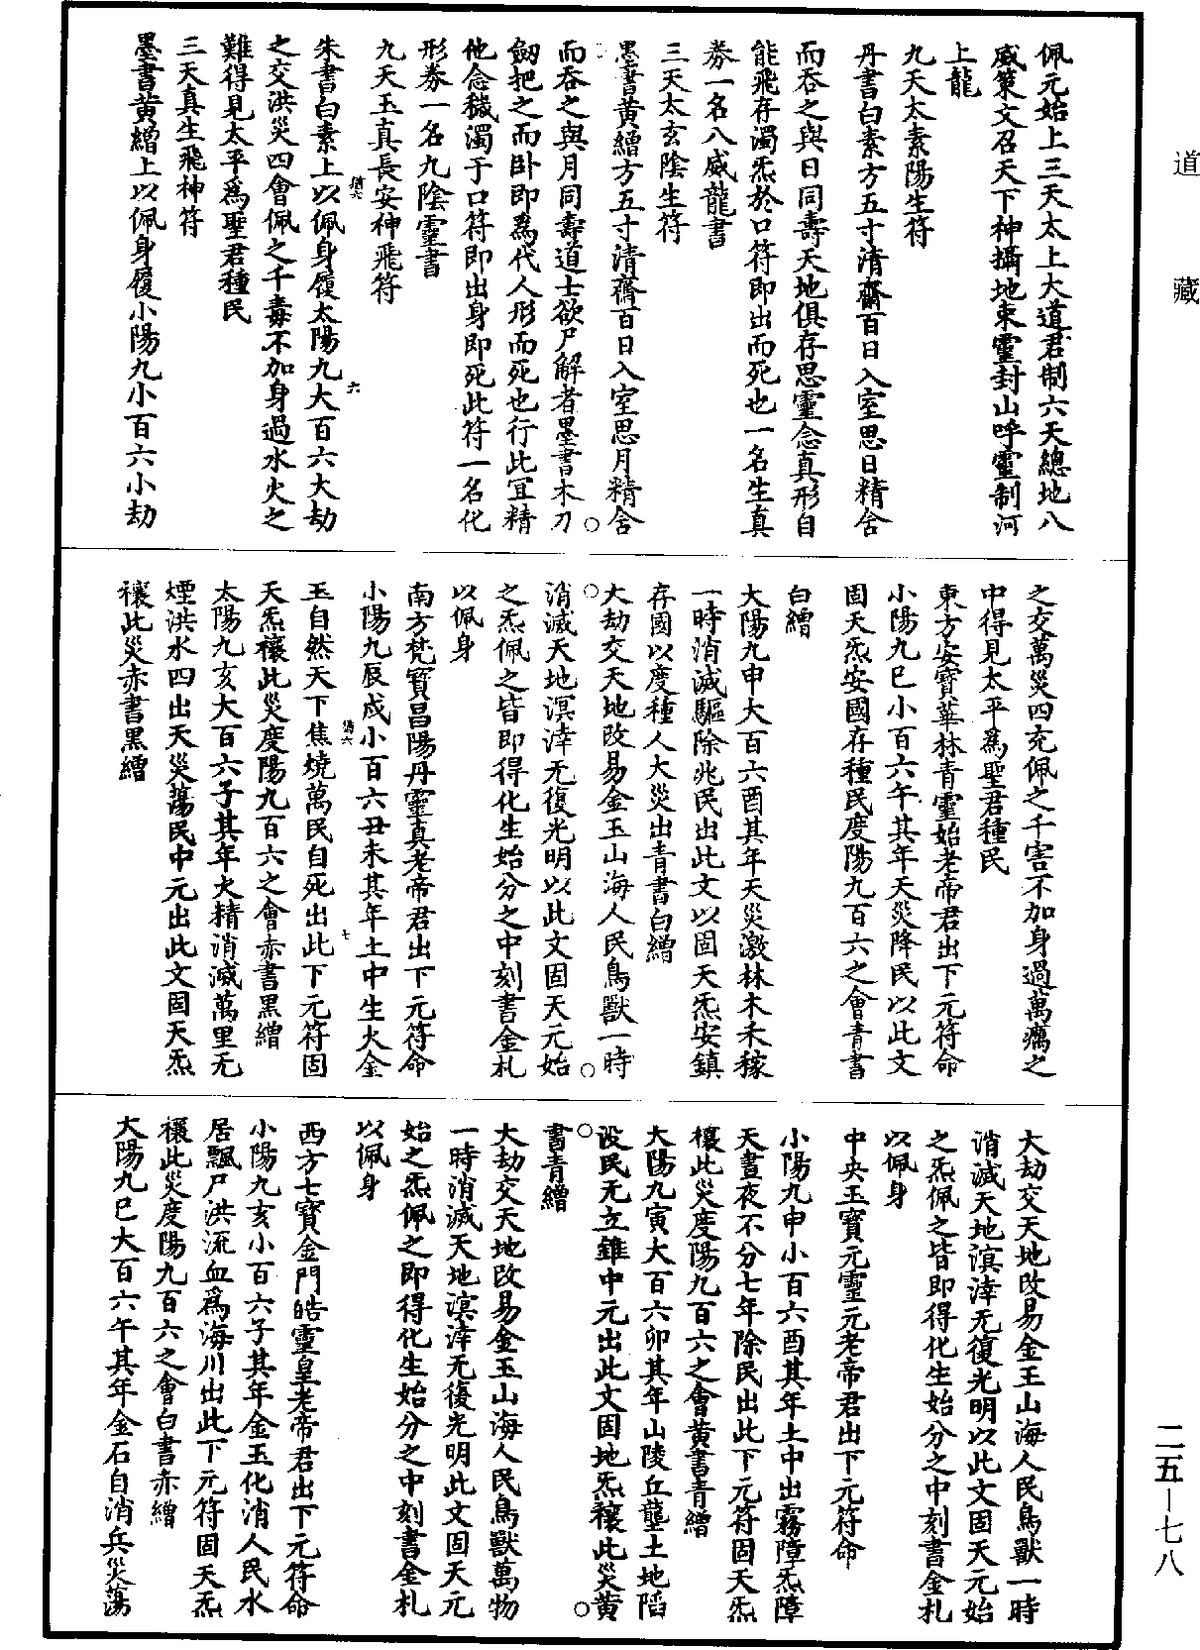 道藏
佩元始上三天太上大道君制六天總地八
威策文召天下神攝地束靈封山呼靈制河
上龍
九天太素陽生符
丹書白素方五寸清齋百日入室思日精舍
而吞之與日同壽天地俱存思靈念真形自
能飛存濁炁於口符即出而死也一名生真
券一名八威龍書
三天太玄陰生符
墨書黃繒方五寸清齋百日入室思月精舍
而吞之與月同壽道士欲尸解者墨書木刀
劒把之而臥即爲代人形而死也行此冝精
他念穢濁于口符即出身即死此符一名化
形券一名九陰靈書
九天玉真長安神飛符
朱書白素上以佩身履太陽九大百六大劫
之交洪災四會佩之千毒不加身過水火之
難得見太平爲聖君種民
三天真生飛神符
墨書黃繒上以佩身履小陽九小百六小劫
之交萬災四充佩之千害不加身過萬癘之
中得見太平爲聖君種民
東方安寶華林青靈始老帝君出下元符命
小陽九巳小百六午其年天災降民以此文
固天炁安國存種民度陽九百六之會青書
白繒
大陽九申大百六酉其年天災激林木禾稼
一時消滅驅除兆民出此文以固天炁安鎮
存國以度種人大災出青書白繒
大劫交天地改易金玉山海人民鳥獸一時
消滅天地溟涬无復光明以此文固天元始
之炁佩之皆即得化生始分之中刻書金札
以佩身
南方梵寶昌陽丹靈真老帝君出下元符命
小陽九辰戌小百六丑未其年土中生火金
玉自然天下焦燒萬民自死出此下元符固
天炁禳此災度陽九百六之會赤書黑繒
太陽九亥大百六子其年火精消滅萬里无
煙洪水四出天災蕩民中元出此文固天炁
禳此災赤書黑繒
大劫交天地改易金玉山海人民鳥獸一時
消滅天地溟涬无復光明以此文固天元始
之炁佩之皆即得化生始分之中刻書金札
以佩身
中央玉寶元靈元老帝君出下元符命
小陽九申小百六酉其年土中出霧障炁障
天晝夜不分七年除民出此下元符固天炁
禳此災度陽九百六之會黃書青繒
大陽九寅大百六卯其年山陵丘壟土地陷
没民无立錐中元出此文固地炁禳此災黃
書青繒
大劫交天地改易金玉山海人民鳥獸萬物
一時消滅天地溟涬无復光明此文固天元
始之炁佩之即得化生始分之中刻書金札
以佩身
西方七寶金門皓靈皇老帝君出下元符命
小陽九亥小百六子其年金玉化消人民水
居飄尸洪流血爲海川出此下元符固天炁
禳此災度陽九百六之會白書赤繒
大陽九巳大百六午其年金石自消兵災蕩
二五—七八